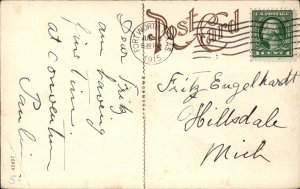 Post Card
FORT WORTH
1915
Dear Fritz
am having
fine time
at convention
Paul
Fritz Engelhardt
Hillsdale
Mich